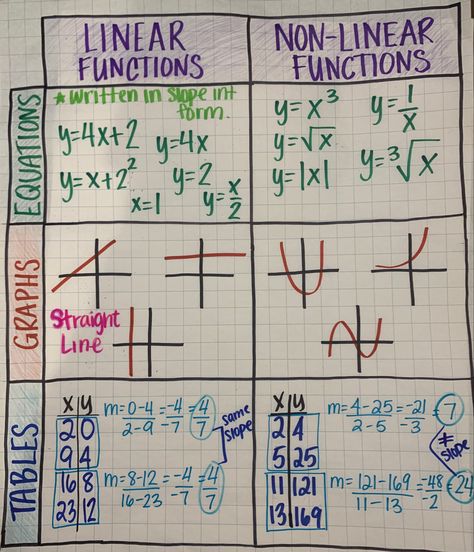 LINEAR
FUNCTIONS
NON-LINEAR
FUNCTIONS
EQUATIONS
* Written in Slope int
form.
y=4x+2
y=4x
y=x+2²
y=2
x=1
y=x/2
y=x³
y=1/x
y=√x
y=|x|
y=³√x
GRAPHS
Straight
Line
TABLES
x|y
2|0
9|4
16|8
23|12
m=0-4/2-9=-4/-7=4/7
m=8-12/16-23=-4/-7=4/7
same
slope
x|y
2|4
5|25
11|121
13|169
m=4-25/2-5=-21/-3=7
m=121-169/11-13=-48/-2=24
≠
slope